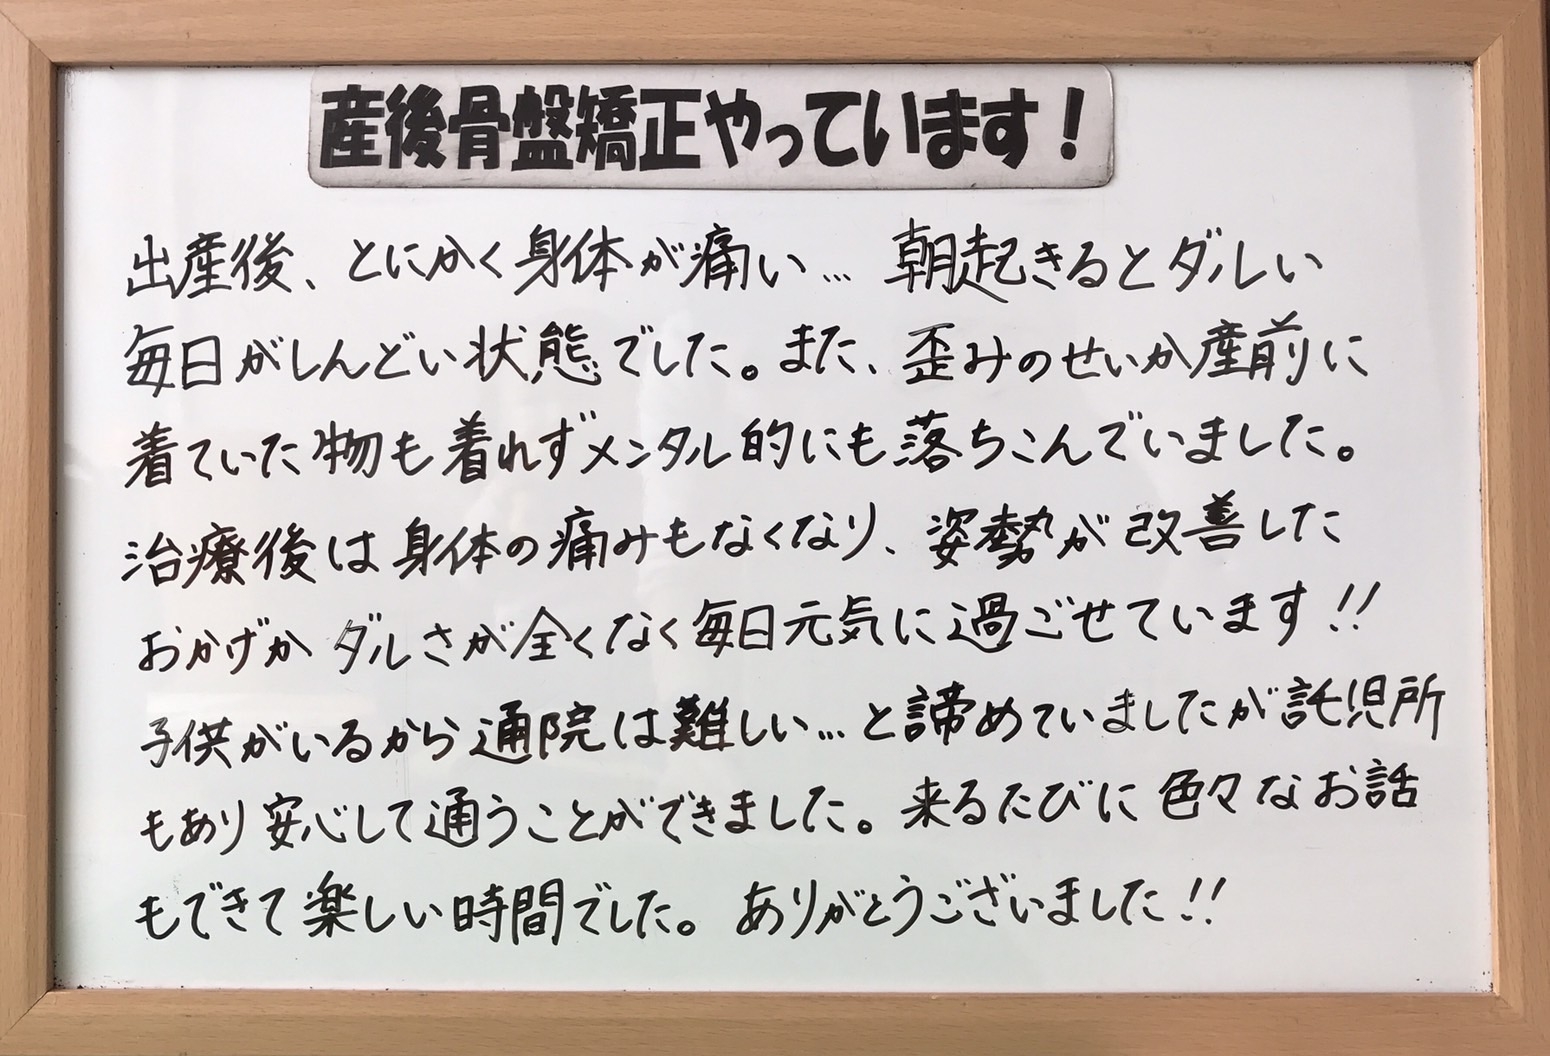 産後骨盤矯正やっています！
出産後、とにかく身体が痛い… 朝起きるとダルい
毎日がしんどい状態でした。また、歪みのせいか産前に
着ていた物も着れずメンタル的にも落ちこんでいました。
治療後は身体の痛みもなくなり、姿勢が改善した
おかげか ダルさが全くなく毎日元気に過ごせています!!
子供がいるから通院は難しい…と諦めていましたが託児所
もあり安心して通うことができました。来るたびに色々なお話
もできて楽しい時間でした。ありがとうございました!!